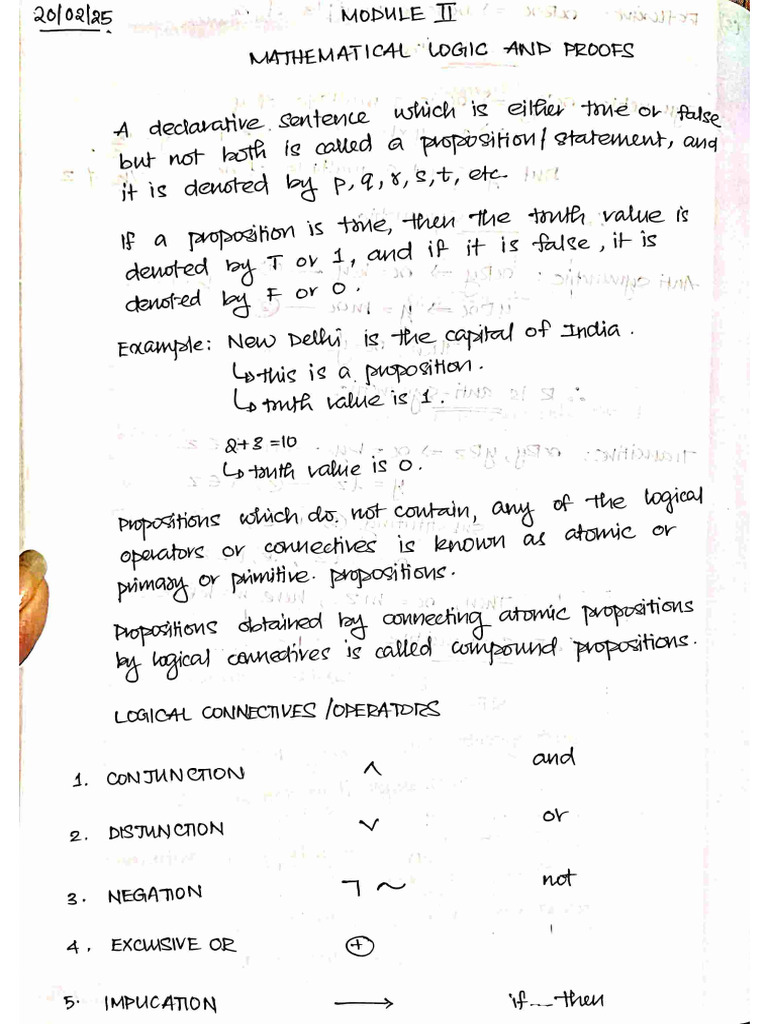 20/02/25
MODULE II
MATHEMATICAL LOGIC AND PROOFS
A declarative sentence which is either true or false
but not both is called a proposition/statement, and
it is denoted by p, q, r, s, t, etc.
If a proposition is true, then the truth value is
denoted by T or 1, and if it is false, it is
denoted by F or 0.
Example: New Delhi is the capital of India.
↳ this is a proposition.
↳ truth value is 1.
2+3=10
↳ truth value is 0.
Propositions which do not contain, any of the logical
operators or connectives is known as atomic or
primary or primitive propositions.
Propositions obtained by connecting atomic propositions
by logical connectives is called compound propositions.
LOGICAL CONNECTIVES/OPERATORS
1. CONJUNCTION ∧ and
2. DISJUNCTION ∨ or
3. NEGATION ¬ ~ not
4. EXCLUSIVE OR ⊕
5. IMPLICATION → if__then